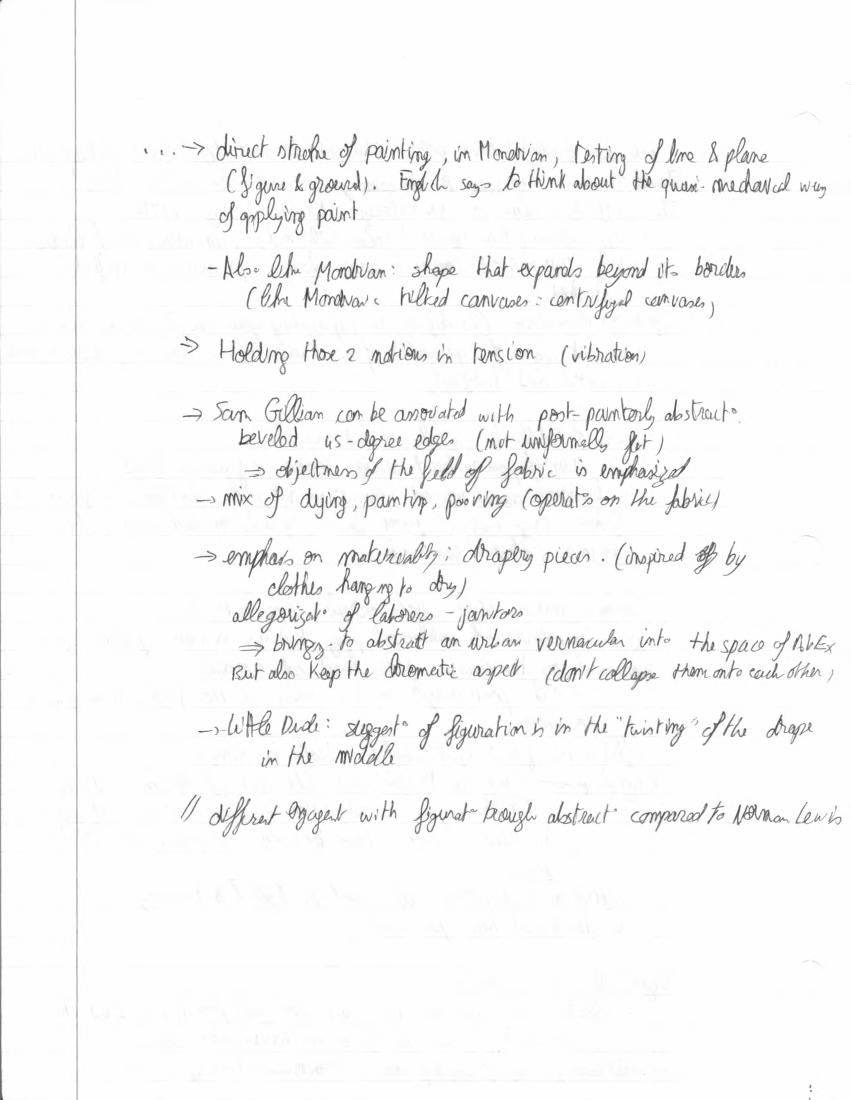 ... → direct stroke of painting, in Mondrian, testing of line & plane
(figure & ground). English says to think about the quasi-mechanical way
of applying paint
- Also like Mondrian: shape that expands beyond its borders
(like Mondrian's tilted canvases: centrifugal canvases)
→ Holding those 2 notions in tension (vibration)
→ Sam Gillian can be associated with post-painterly abstract°.
beveled 45-degree edges (not uniformally flat)
⇒ objectness of the field of fabric is emphasized
→ mix of dying, painting, pooring (operats on the fabric)
→ emphasis on materiality: drapery pieces. (inspired by
clothes hanging to dry)
allegorizat° of laborers - janitors
⇒ brings to abstract an urban vernacular into the space of AbEx
But also keep the chromatic aspect (don't collapse them onto each other)
→ Little Dude: suggest° of figuration is in the "twisting" of the drape
in the middle
// different with figurat° through abstract° compared to Norman Lewis